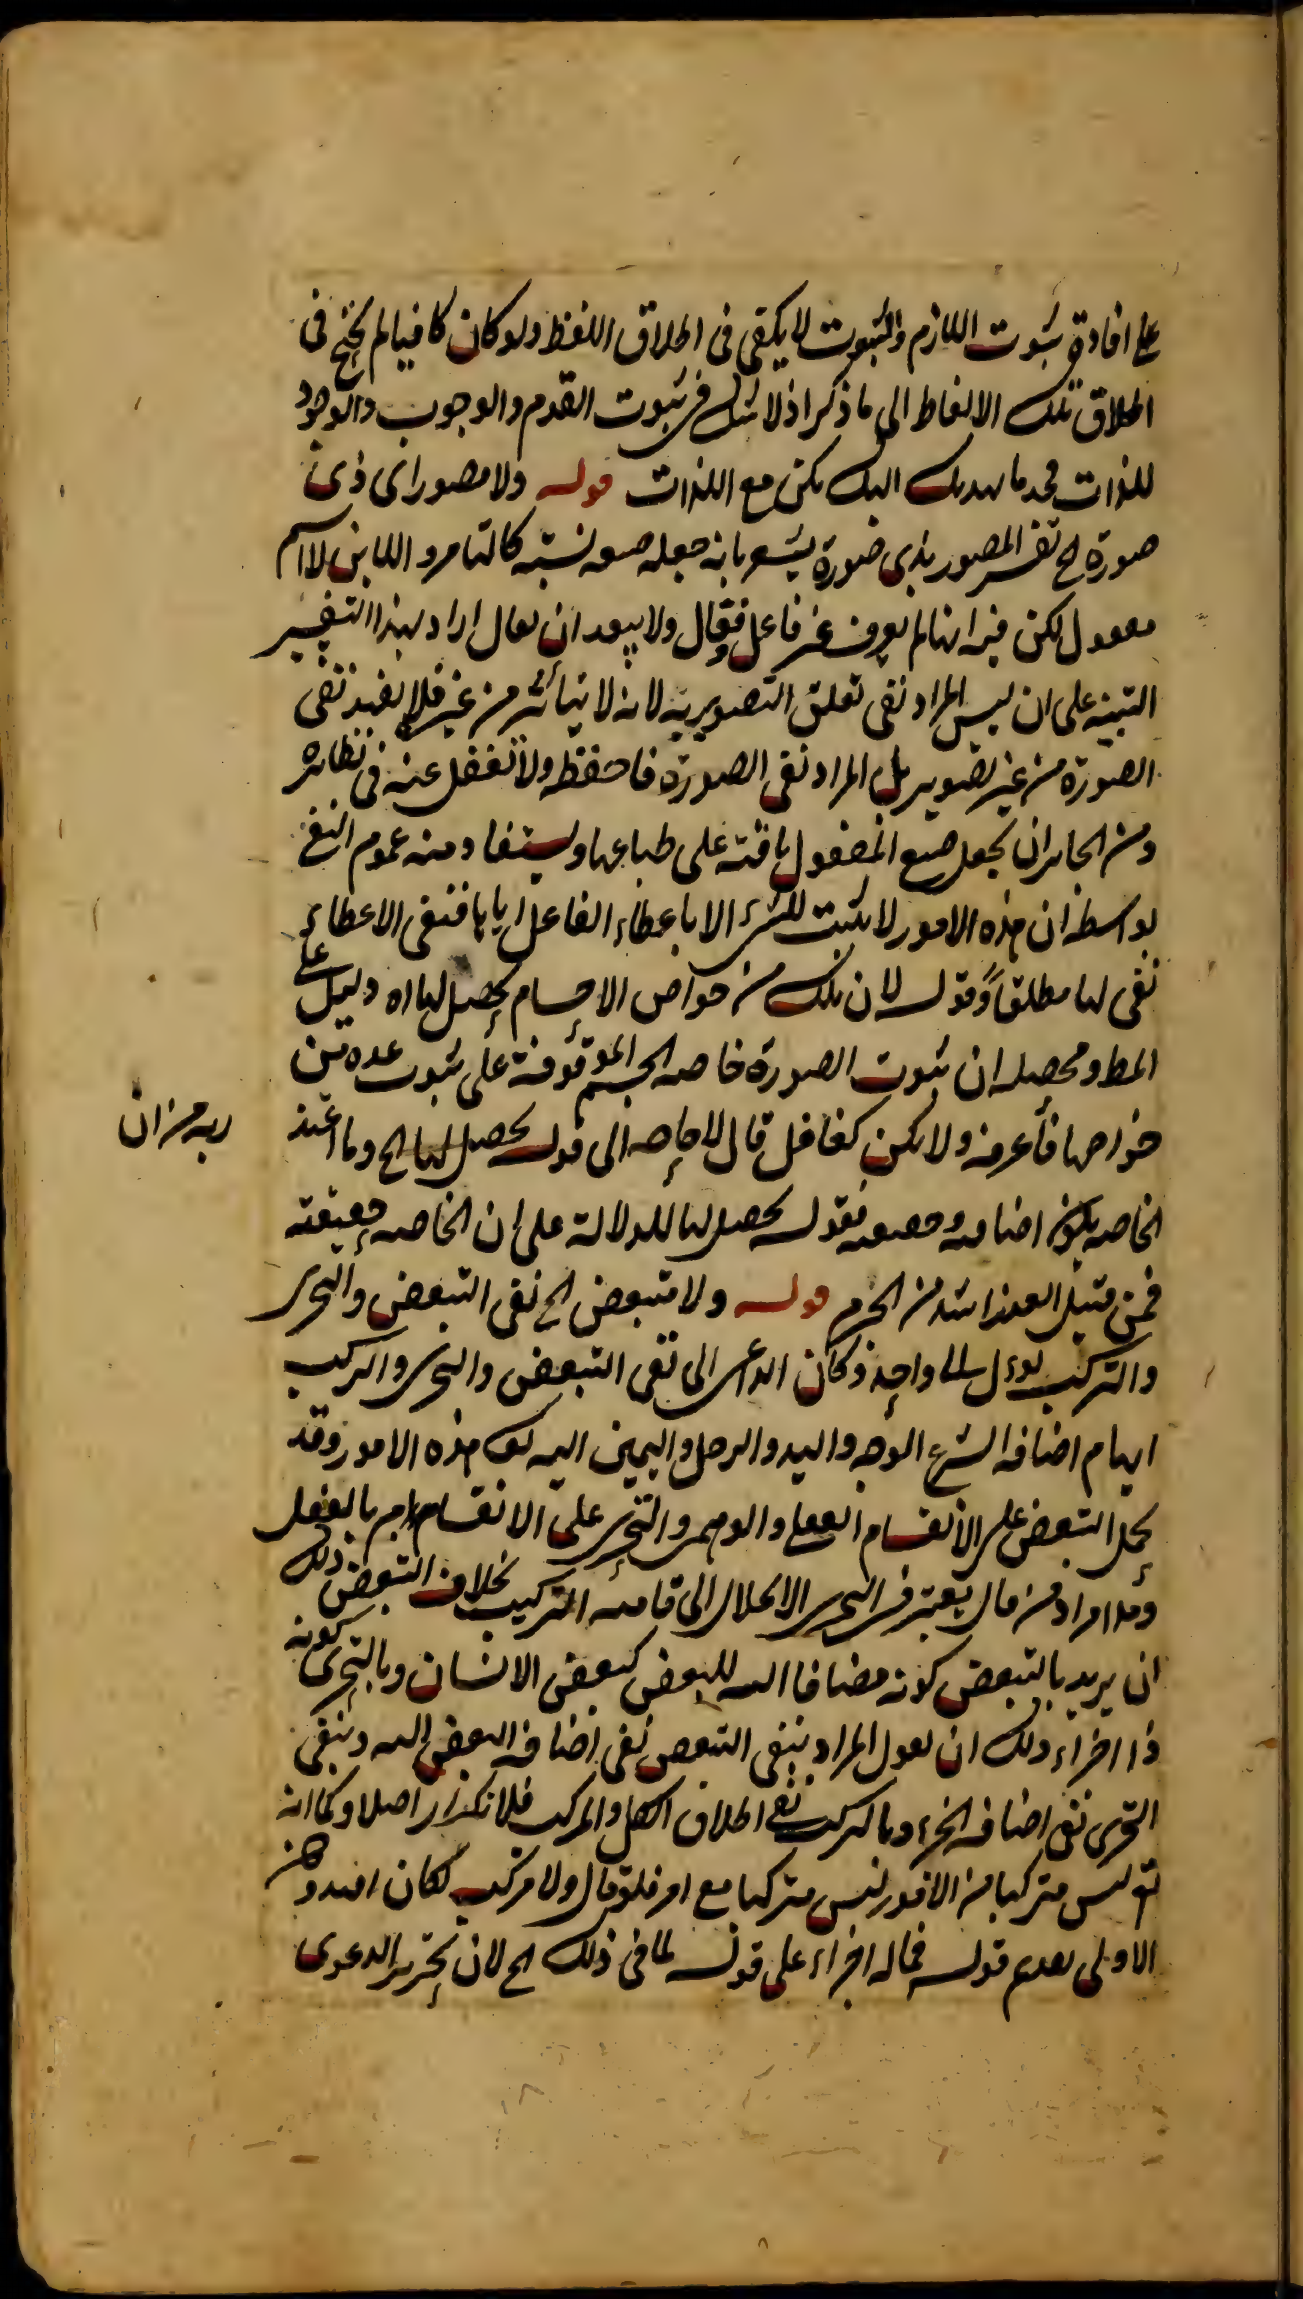 على افادة ثبوت اللازم والثبوت لا يكفى فى اطلاق اللفظ ولو كان كافيا لم يحتج فى
اطلاق تلك الالفاظ الى ما ذكر اذ لا شك فى ثبوت القدم والوجوب والوجود
للذات مع الذات قوله ولا مصور اى ذى
صورة الخ تفسير المصور بذى صورة يشعر بانه جعله صيغة نسبة كالتامر واللابن لا اسم
مفعول لكن فيه انها لم يعرف غير فاعل وفعال ولا يبعد ان يقال اراد بهذا التفسير
التنبيه على ان ليس المراد نفى تعلق التصوير به لانه لا يتأثر من غيره فلا يفيد نفى
الصورة من غير تصوير بل المراد نفى الصورة فاحفظه ولا تغفل عنه فى نظائره
ومن الجائز ان يجعل صيغ المفعول باقية على طباعها ويستفاد منه عموم النفى
بواسطة ان هذه الامور لا يثبت للشىء الا باعطاء الفاعل اياها فنفى الاعطاء
نفى لها مطلقا وقوله لان تلك من خواص الاجسام يحصل لها اه دليل على
المط ومحصله ان ثبوت الصورة خاصة الجسم الموقوفة على ثبوت عدة من
خواصها فاعرفه ولا تكن كغافل قال لا حاجة الى قوله يحصل لها الخ وما
ربه من ان
الخاصة يكون اضافية وحقيقية فقوله يحصل لها للدلالة على ان الخاصة حقيقية
فمن قبيل العذر اشد من الجرم قوله ولا متبعض الخ نفى التبعض والتجزى
والتركب واحد وكان الداعى الى نفى التبعض والتجزى والتركب
ايهام اضافة الشرع الوجه واليد والرجل واليمين اليه تعالى هذه الامور وقد
يحمل التبعض على الانقسام العقلى والوهمى والتجزى على الانقسام بالفعل
ومن قال يعتبر فى التجزى الانحلال الى ما منه التركيب بخلاف التبعض ذلك
ان يريد بالتبعض كونه مضافا اليه للبعض كبعض الانسان وبالتجزى كونه
ذا اجزاء ولك ان تقول المراد بنفى التبعض نفى اضافة البعض اليه وبنفى
التجزى نفى اضافة الجزء وبالتركب نفى اطلاق الكل والمركب فلا تكرار اصلا وكما انه
تع ليس متركبا من الامور ليس متركبا مع امر فلو قال ولا مركب لكان افيد وكان
الاولى تقديم قوله فماله اجزاء على قوله لما فى ذلك الخ لان تحرير الدعوى